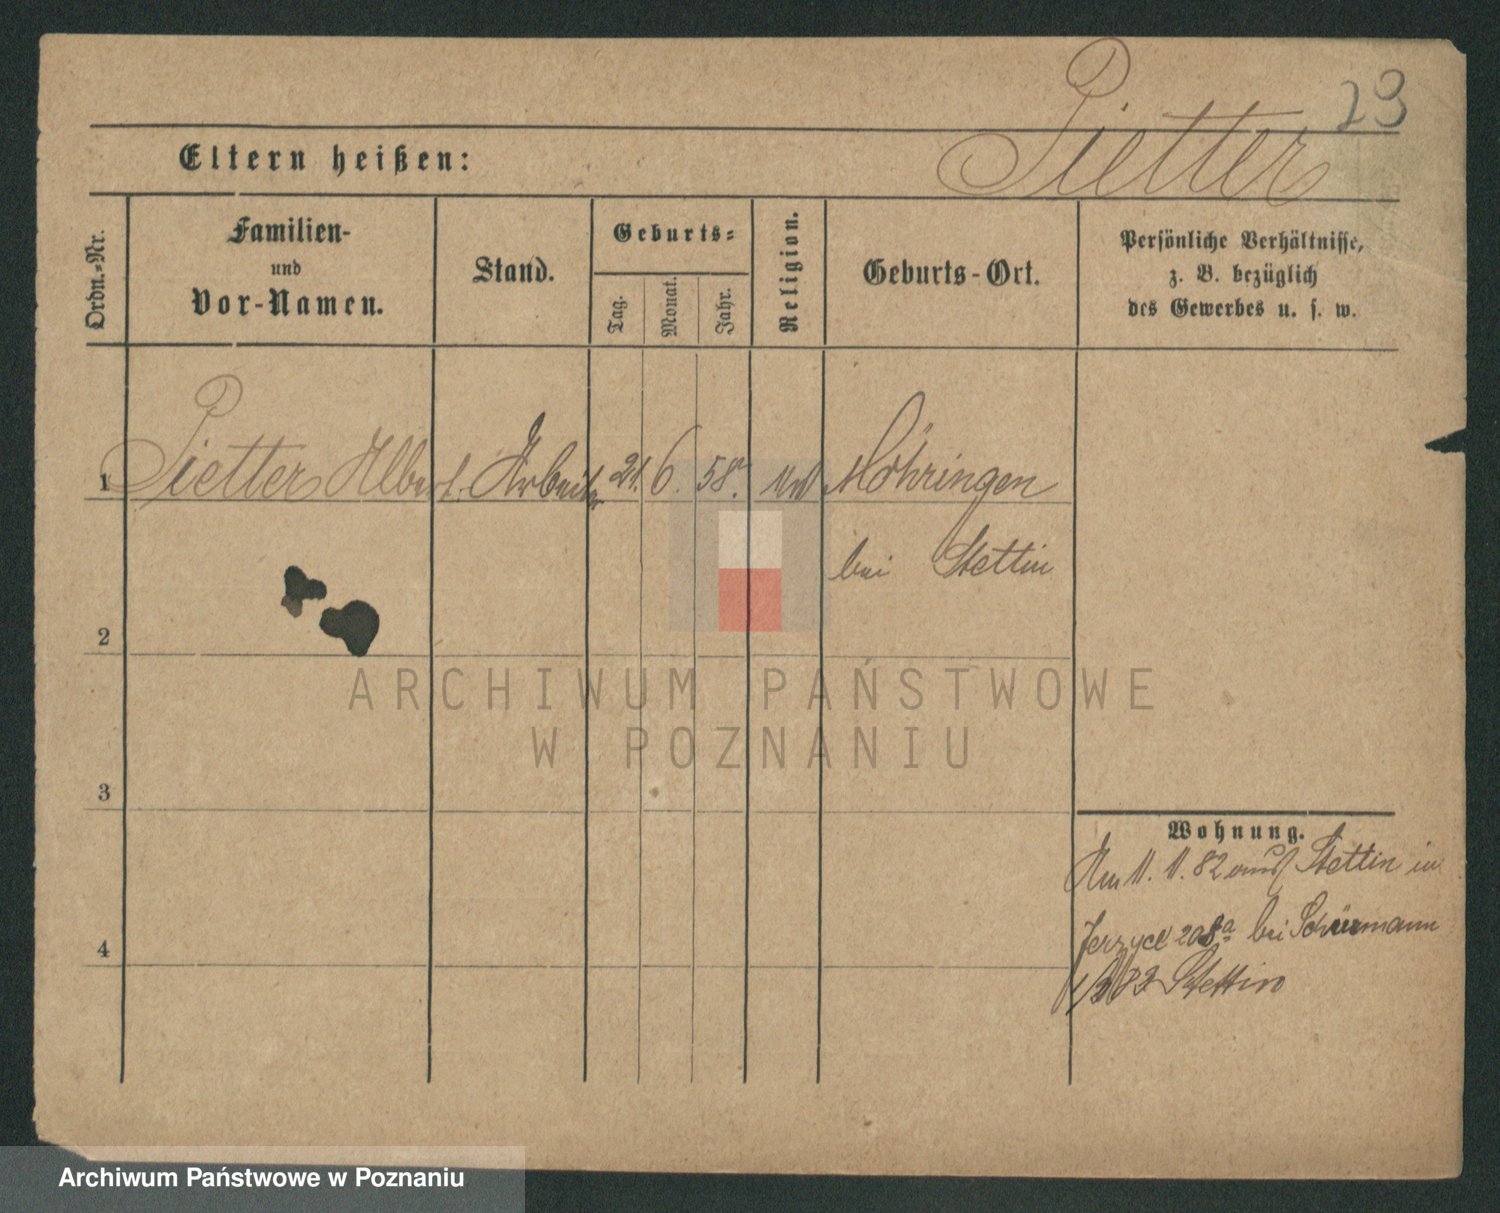 23
Pietter
Eltern heißen:
Ordn.-Nr.
Familien-
und
Vor-Namen.
Stand.
Geburts-
Tag.
Monat.
Jahr.
Religion.
Geburts-Ort.
Persönliche Verhältnisse,
z. B. bezüglich
des Gewerbes u. s. w.
1 Pietter Albert. Arbeiter 21. 6. 58. Möhringen
bei Stettin
2
3
4
Wohnung.
Am 11. 11. 82 aus Stettin in
Jerzyce 208a bei Schürmann
82 Stettin
ARCHIWUM PAŃSTWOWE
W POZNANIU
Archiwum Państwowe w Poznaniu